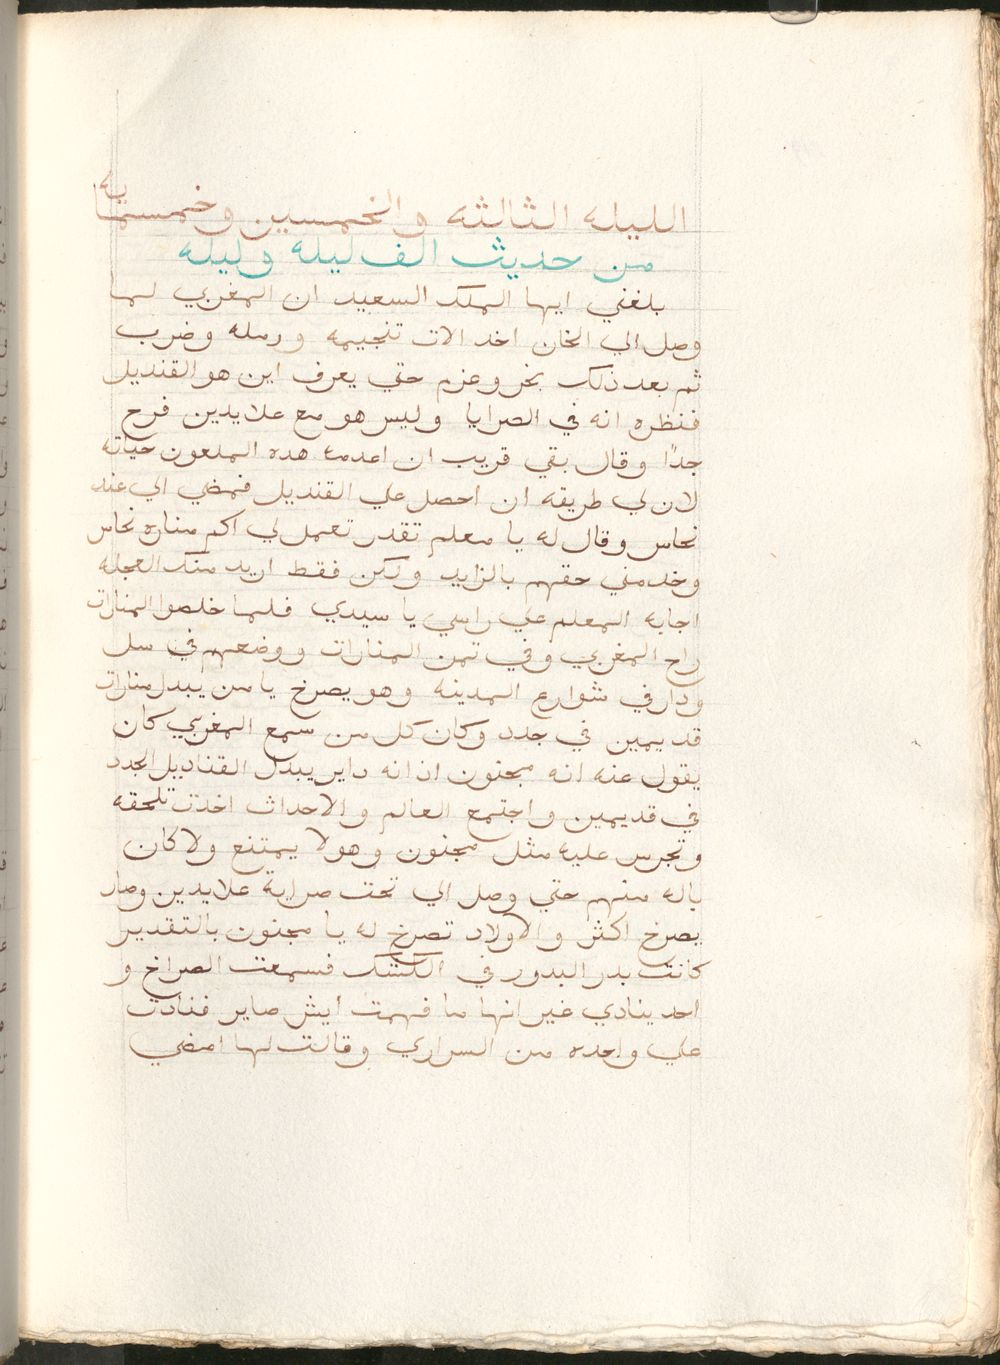 الليله الثالثه والخمسين وخمسماية
من حديث الف ليله وليله
بلغني ايها الملك السعيد ان المغربي لما
وصل الي الخان اخد الات تنجيمه ورمله وضرب
ثم بعد ذلك بخر وعزم حتي يعرف اين هو القنديل
فنظره انه في الصرايا وليس هو مع علايدين فرح
جدًا وقال بقي قريب ان اعدمه هده الملعون حياته
لان لي طريقه ان احصل علي القنديل فمضي الي عند
نحاس وقال له يا معلم تقدر تعمل لي اكم مناره نحاس
وخد مني حقهم بالزايد ولكن فقط اريد منك العجله
اجابه المعلم علي راسي يا سيدي فلما خلصوا المنارات
راح المغربي وفي تمن المنارات ووضعهم في سل
ودار في شوارع المدينه وهو يصرخ يا من يبدل منارات
قديمين في جدد وكان كل من سمع المغربي كان
يقول عنه انه مجنون اذ انه داير يبدل القناديل الجدد
في قديمين واجتمع العالم والاحداث اخذت تلحقه
وتجرس عليه مثل مجنون وهو لا يمتنع ولا كان
باله منهم حتي وصل الي تحت صراية علايدين وصار
يصرخ اكثر والاولاد تصرخ له يا مجنون بالتقدير
كانت بدر البدور في الكشك فسمعت الصراخ و
احد ينادي غير انها ما فهمت ايش صاير فنادت
علي واحده من السراري وقالت لها امضي